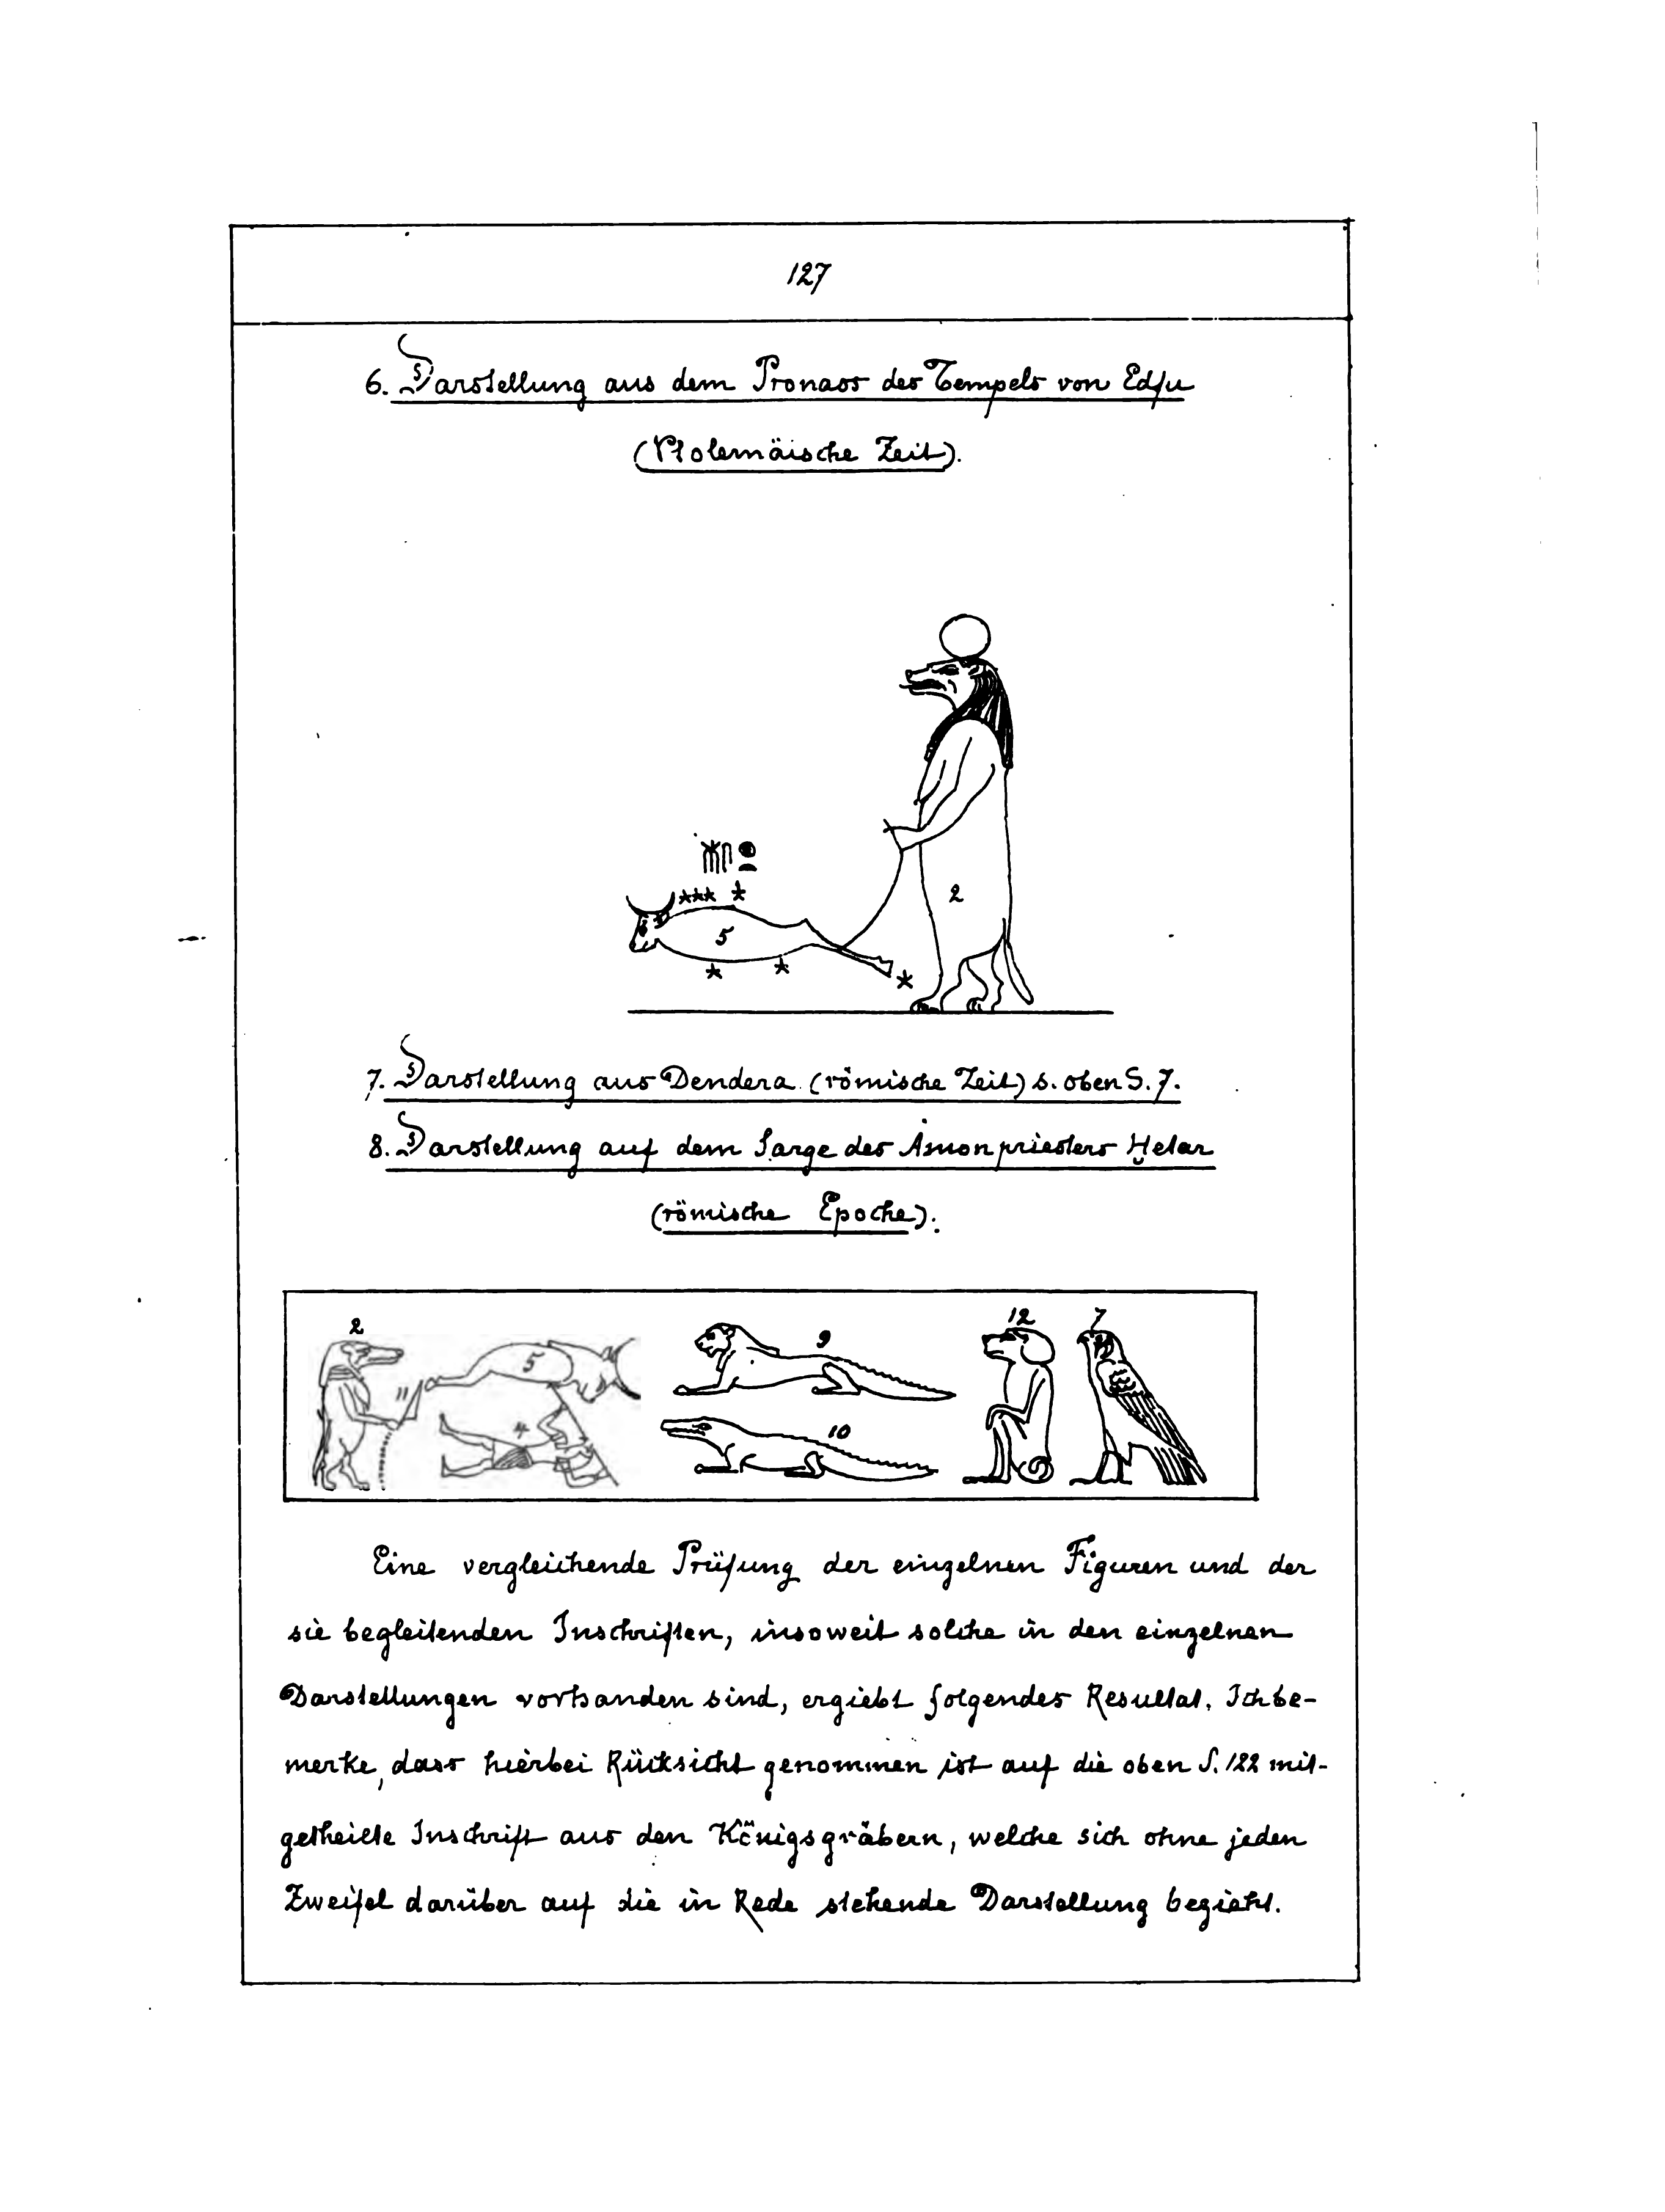 127
6. Darstellung aus dem Pronaos des Tempels von Edfu
(Ptolemäische Zeit).
2
5
7. Darstellung aus Dendera (römische Zeit) s. oben S. 7.
8. Darstellung auf dem Sarge des Amonpriesters Ḥetar
(römische Epoche).
2 11 5 4 9 10 12 7
Eine vergleichende Prüfung der einzelnen Figuren und der
sie begleitenden Inschriften, insoweit solche in den einzelnen
Darstellungen vorhanden sind, ergiebt folgendes Resultat. Ich be-
merke, dass hierbei Rücksicht genommen ist auf die oben S. 122 mit-
getheilte Inschrift aus den Königsgräbern, welche sich ohne jeden
Zweifel darüber auf die in Rede stehende Darstellung bezieht.